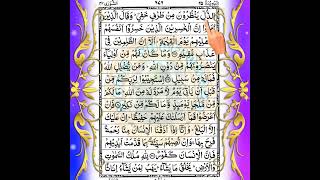 الذُّلِّ يَنْظُرُوْنَ مِنْ طَرْفٍ خَفِيٍّ ؕ وَقَالَ الَّذِيْنَ
اِنَّ الْخٰسِرِيْنَ الَّذِيْنَ خَسِرُوْۤا اَنْفُسَهُمْ
وَاَهْلِيْهِمْ يَوْمَ الْقِيٰمَةِ ؕ اَلَاۤ اِنَّ الظّٰلِمِيْنَ فِيْ
عَذَابٍ مُّقِيْمٍ ۝ وَمَا كَانَ لَهُمْ مِّنْ اَوْلِيَآءَ
يَنْصُرُوْنَهُمْ مِّنْ دُوْنِ اللّٰهِ ؕ وَمَنْ يُّضْلِلِ اللّٰهُ
فَمَا لَهٗ مِنْ سَبِيْلٍ ۝ اِسْتَجِيْبُوْا لِرَبِّكُمْ مِّنْ
قَبْلِ اَنْ يَّاْتِيَ يَوْمٌ لَّا مَرَدَّ لَهٗ مِنَ اللّٰهِ ؕ مَا لَكُمْ
مِّنْ مَّلْجَاٍ يَّوْمَئِذٍ وَّمَا لَكُمْ مِّنْ نَّكِيْرٍ ۝ فَاِنْ
اَعْرَضُوْا فَمَاۤ اَرْسَلْنٰكَ عَلَيْهِمْ حَفِيْظًا ؕ اِنْ عَلَيْكَ
اِلَّا الْبَلٰغُ ؕ وَاِنَّاۤ اِذَاۤ اَذَقْنَا الْاِنْسَانَ مِنَّا رَحْمَةً
فَرِحَ بِهَا ۚ وَاِنْ تُصِبْهُمْ سَيِّئَةٌۢ بِمَا قَدَّمَتْ اَيْدِيْهِمْ
فَاِنَّ الْاِنْسَانَ كَفُوْرٌ ۝ لِلّٰهِ مُلْكُ السَّمٰوٰتِ
وَالْاَرْضِ ؕ يَخْلُقُ مَا يَشَآءُ ؕ يَهَبُ لِمَنْ يَّشَآءُ اِنَاثًا